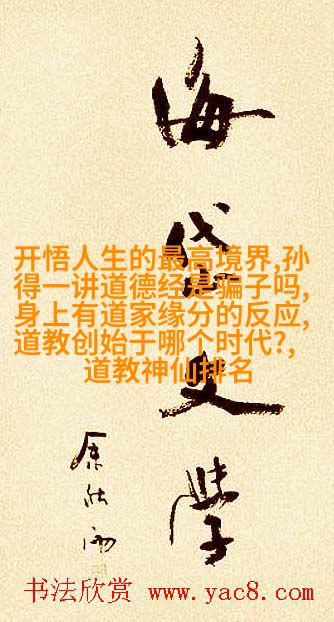 海岱文學
开悟人生的最高境界,孙
得一讲道德经是骗子吗,
身上有道家缘分的反应,
道教创始于哪个时代?,
道教神仙排名
书法欣赏 www.yac8.com